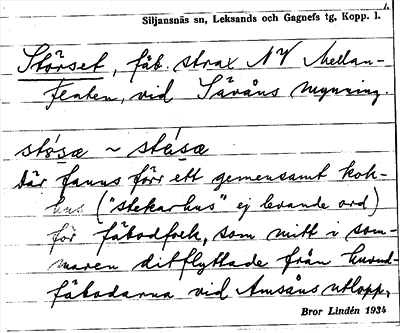 1.
Siljansnäs sn, Leksands och Gagnefs tg, Kopp. l.
Störset, fäb. strax NV Mellan-
fjeten, vid Säråns mynning.
stö́sæ ~ stǿsæ
där fanns förr ett gemensamt kok-
hus ("stekarhus" ej levande ord)
för fäbodfolk, som mitt i som-
maren ditflyttade från huvud-
fäbodarna vid Amsåns utlopp.
Bror Lindén 1934